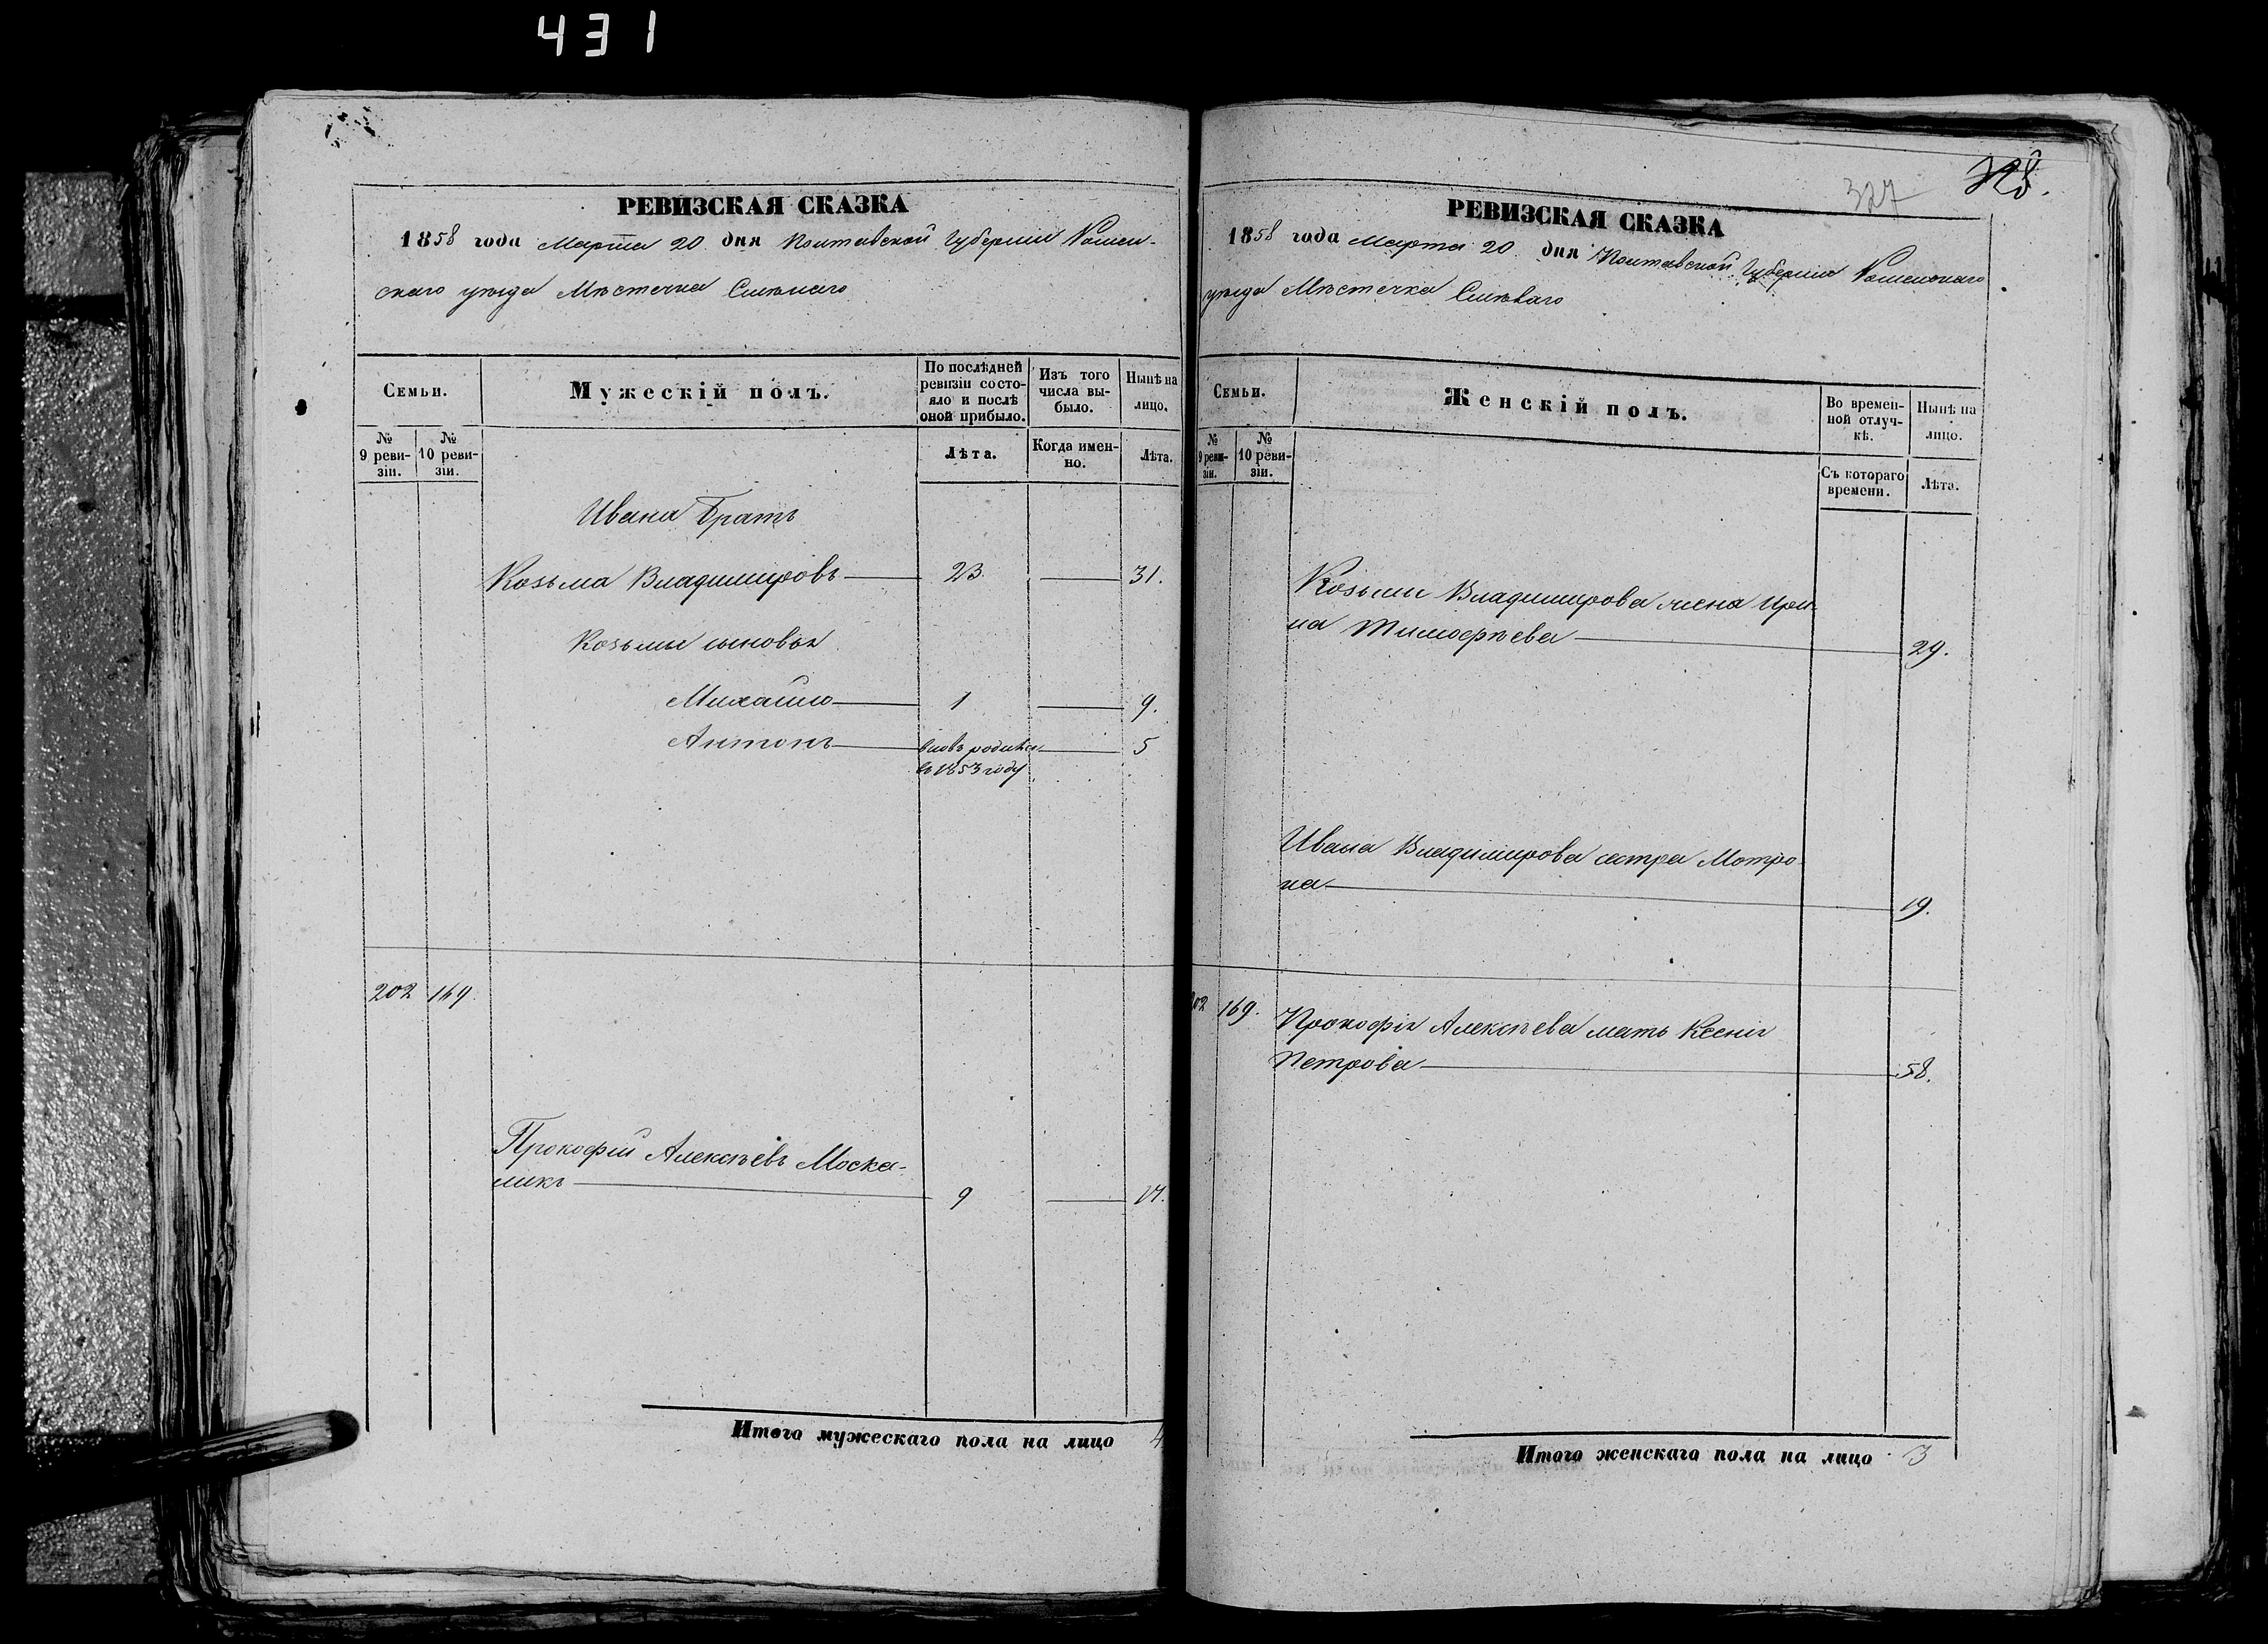 431
РЕВИЗСКАЯ СКАЗКА
1858 года Марта 20 дня Полтавской Губерніи Ромен-
скаго уѣзда Мѣстечка Смѣлаго
Семьи.
Мужескій полъ.
По послѣдней
ревизіи состо-
яло и послѣ
оной прибыло.
Изъ того
числа вы-
было.
Нынѣ на
лицо.
№
9 реви-
зіи.
№
10 реви-
зіи.
Лѣта.
Когда имен-
но.
Лѣта.
Ивана Братъ
Козьма Владимировъ 23. 31.
Козьмы сыновья
Михайло 1 9.
Антонъ вновь родился 5
въ 1853 году
202 169.
Прокофій Алексѣевъ Моска-
ликъ 9 17.
Итого мужескаго пола на лицо 4
327 328.
РЕВИЗСКАЯ СКАЗКА
1858 года Марта 20. дня Полтавской Губерніи Роменскаго
уѣзда Мѣстечка Смѣлаго
Семьи.
Женскій полъ.
Во времен-
ной отлуч-
кѣ.
Нынѣ на
лицо.
№
9 реви-
зіи.
№
10 реви-
зіи.
Съ котораго
времени.
Лѣта.
Козьмы Владимирова жена Ири-
на Тимофѣева 29.
Ивана Владимирова сестра Мотро-
на 19.
202 169. Прокофія Алексѣева мать Ксенія
Петрова 58.
Итого женскаго пола на лицо 3